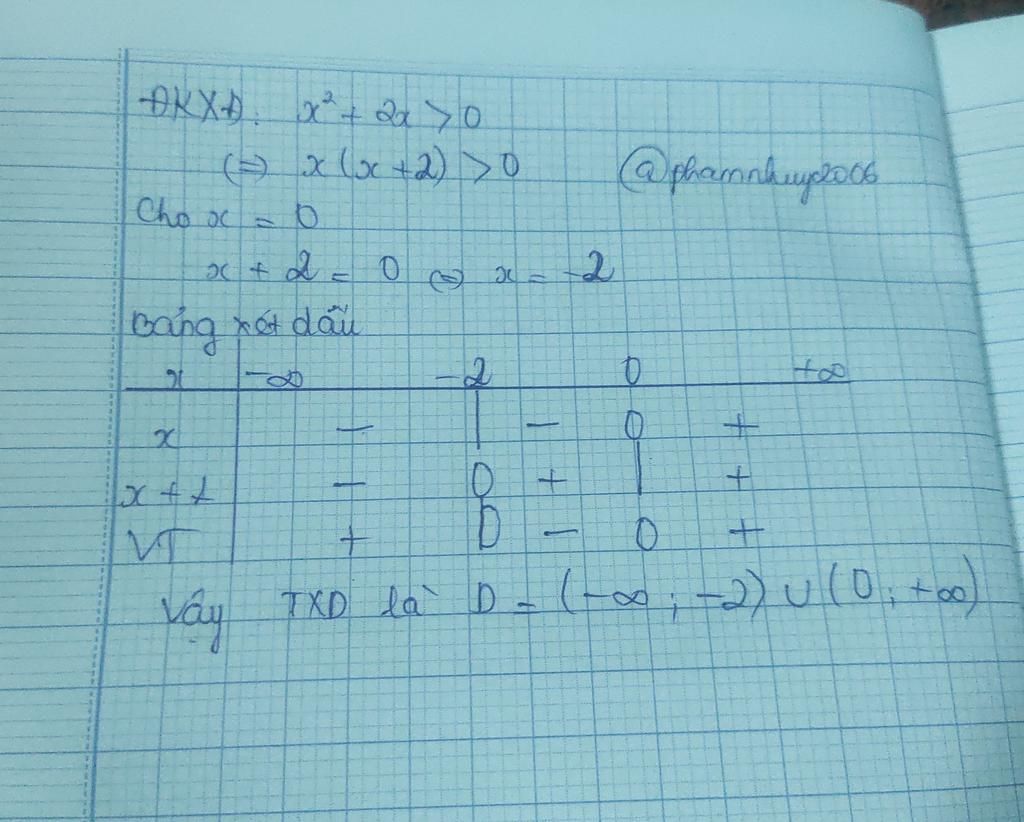 ĐKXĐ: x² + 2x > 0
(=) x(x+2) > 0 @phamnhuy2006
Cho x = 0
x + 2 = 0 (=) x = -2
Bảng xét dấu
x -∞ -2 0 +∞
x - | - 0 +
x + 2 - 0 + | +
VT + 0 - 0 +
Vậy TXD là D = (-∞; -2) ∪ (0; +∞)